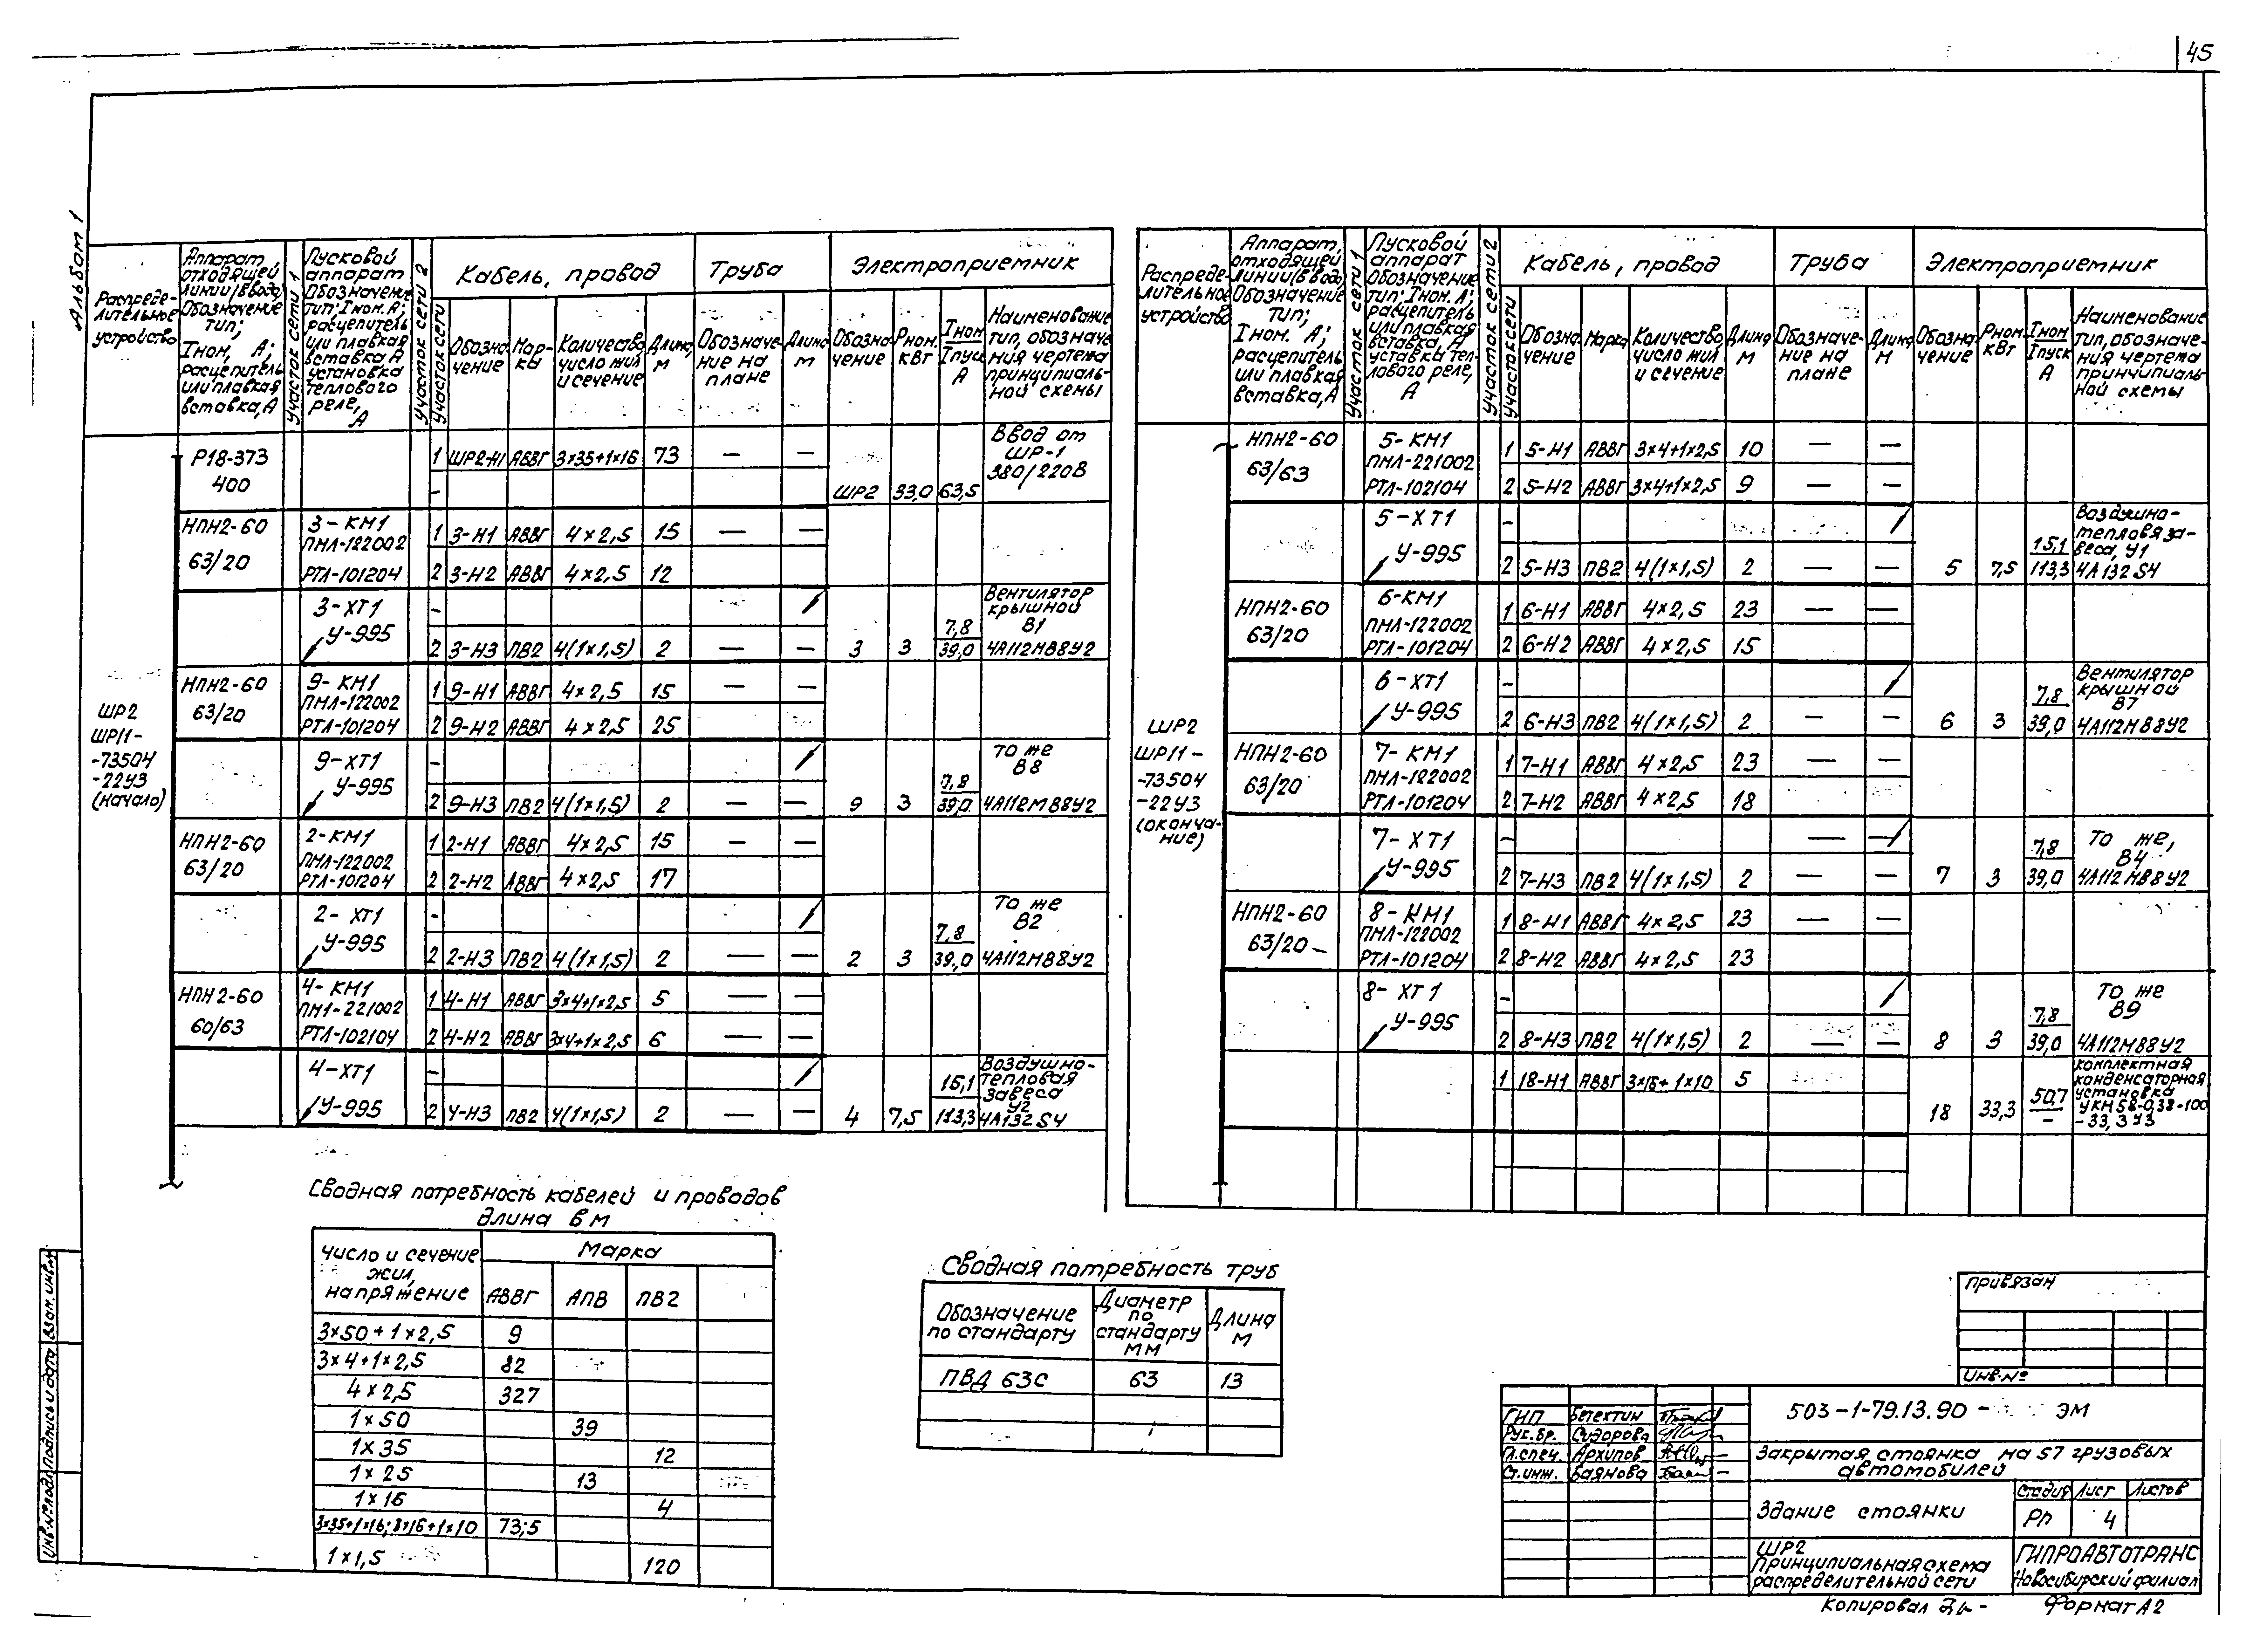 45
Альбом 1
Распреде-
лительное
устройство
Аппарат,
отходящей
линии (ввода)
Обозначение
тип;
Iном, А;
расцепитель
или плавкая
вставка, А
Участок сети 1
Пусковой
аппарат
Обозначение
тип; Iном. А;
расцепитель
или плавкая
вставка А
установка
теплового
реле,
А
Участок сети 2
Кабель, провод
Труба
Электроприемник
Участок сети
Обозна-
чение
Мар-
ка
Количество,
число жил
и сечение
Длина,
м
Обозначе-
ние на
плане
Длина
м
Обозна-
чение
Рном.
кВт
Iном
Iпуск
А
Наименование
тип, обозначе-
ния чертежа
принципиаль-
ной схемы
ШР2
ШР11-
-73504
-22У3
(начало)
Р18-373
400
1 ШР2-Н1 АВВГ 3×35+1×16 73 — —
Ввод от
ШР-1
380/220В
-
ШР2 33,0 63,5
НПН2-60
63/20
3-КМ1
ПМЛ-122002
РТЛ-101204
1 3-Н1 АВВГ 4×2,5 15 — —
2 3-Н2 АВВГ 4×2,5 12
3-ХТ1
У-995
-
2 3-Н3 ПВ2 4(1×1,5) 2 — — 3 3 7,8
39,0
Вентилятор
крышной
В1
4А112МВ8У2
НПН2-60
63/20
9-КМ1
ПМЛ-122002
РТЛ-101204
1 9-Н1 АВВГ 4×2,5 15 — —
2 9-Н2 АВВГ 4×2,5 25
9-ХТ1
У-995
-
2 9-Н3 ПВ2 4(1×1,5) 2 — — 9 3 7,8
39,0
то же
В8
4А112МВ8У2
НПН2-60
63/20
2-КМ1
ПМЛ-122002
РТЛ-101204
1 2-Н1 АВВГ 4×2,5 15 — —
2 2-Н2 АВВГ 4×2,5 17
2-ХТ1
У-995
-
2 2-Н3 ПВ2 4(1×1,5) 2 — — 2 3 7,8
39,0
То же
В2
4А112МВ8У2
НПН2-60
60/63
4-КМ1
ПМ1-221002
РТЛ-102104
1 4-Н1 АВВГ 3×4+1×2,5 5 — —
2 4-Н2 АВВГ 3×4+1×2,5 6 — —
4-ХТ1
У-995
-
2 4-Н3 ПВ2 4(1×1,5) 2 — — 4 7,5 15,1
113,3
Воздушно-
тепловая
завеса
У2
4А132S4
Распреде-
лительное
устройство
Аппарат,
отходящей
линии (ввода)
Обозначение
тип;
Iном. А;
расцепитель
или плавкая
вставка, А
Участок сети 1
Пусковой
аппарат
Обозначение
тип; Iном. А;
расцепитель
или плавкая
вставка, А
уставка теп-
лового реле,
А
Участок сети 2
Кабель, провод
Труба
Электроприемник
Участок сети
Обозна-
чение
Марка
Количество,
число жил
и сечение
Длина
м
Обозначе-
ние на
плане
Длина
м
Обозна-
чение
Рном.
кВт
Iном
Iпуск
А
Наименование
тип, обозначе-
ния чертежа
принципиаль-
ной схемы
ШР2
ШР11-
-73504
-22У3
(оконча-
ние)
НПН2-60
63/63
5-КМ1
ПМЛ-221002
РТЛ-102104
1 5-Н1 АВВГ 3×4+1×2,5 10 — —
2 5-Н2 АВВГ 3×4+1×2,5 9 — —
5-ХТ1
У-995
-
2 5-Н3 ПВ2 4(1×1,5) 2 — — 5 7,5 15,1
113,3
Воздушно-
тепловя за-
веса, У1
4А132S4
НПН2-60
63/20
6-КМ1
ПМЛ-122002
РТЛ-101204
1 6-Н1 АВВГ 4×2,5 23 — —
2 6-Н2 АВВГ 4×2,5 15
6-ХТ1
У-995
-
2 6-Н3 ПВ2 4(1×1,5) 2 — — 6 3 7,8
39,0
Вентилятор
крышной
В7
4А112МВ8У2
НПН2-60
63/20
7-КМ1
ПМЛ-122002
РТЛ-101204
1 7-Н1 АВВГ 4×2,5 23 — —
2 7-Н2 АВВГ 4×2,5 18
7-ХТ1
У-995
- — —
2 7-Н3 ПВ2 4(1×1,5) 2 — — 7 3 7,8
39,0
То же,
В4
4А112МВ8У2
НПН2-60
63/20
8-КМ1
ПМЛ-122002
РТЛ-101204
1 8-Н1 АВВГ 4×2,5 23 — —
2 8-Н2 АВВГ 4×2,5 23
8-ХТ1
У-995
-
2 8-Н3 ПВ2 4(1×1,5) 2 — — 8 3 7,8
39,0
То же
В9
4А112МВ8У2
1 18-Н1 АВВГ 3×16+1×10 5
18 33,3 50,7
-
комплектная
конденсаторная
установка
УКМ58-0,38-100
-33,3 У3
Сводная потребность кабелей и проводов
длина в м
Число и сечение
жил,
напряжение
Марка
АВВГ АПВ ПВ2
3×50+1×2,5 9
3×4+1×2,5 82
4×2,5 327
1×50 39
1×35 12
1×25 13
1×16 4
3×35+1×16; 3×16+1×10 73;5
1×1,5 120
Сводная потребность труб
Обозначение
по стандарту
Диаметр
по
стандарту
мм
Длина
м
ПВД 63С 63 13
Привязан
Инв.№
ГИП Бетехтин
Рук.бр. Сидорова
Гл.спец. Архипов
Ст.инж. Баянова
503-1-79.13.90- ЭМ
Закрытая стоянка на 57 грузовых
автомобилей
Здание стоянки
Стадия Лист Листов
РП 4
ШР2
Принципиальная схема
распределительной сети
ГИПРОАВТОТРАНС
Новосибирский филиал
Копировал
Формат А2
Взам. инв.№
Подпись и дата
Инв.№ подл.